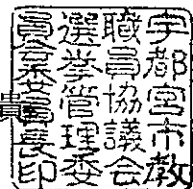 宇都宮市教
職員協議会
選挙管理委
員会委員長印
貴